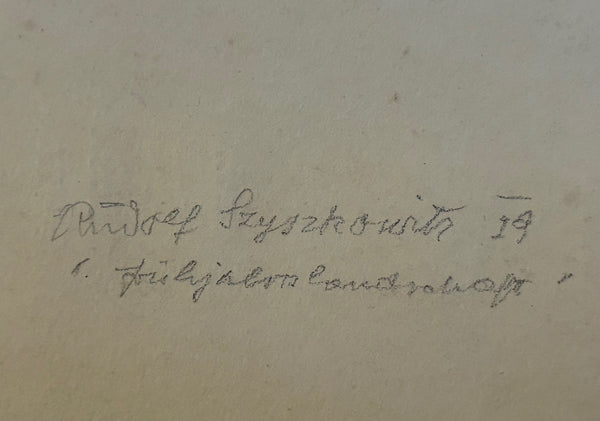 Rudolf Szyszkowitz 19
"Frühjahrslandschaft"